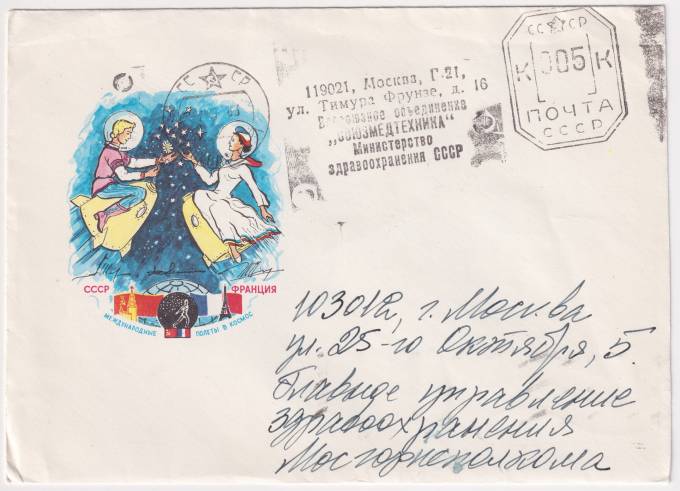 СС СР
К 005 К
ПОЧТА
СССР
СС СР
119021, Москва, Г-21,
ул. Тимура Фрунзе, д. 16
Всесоюзное объединение
„СОЮЗМЕДТЕХНИКА"
Министерство
здравоохранения СССР
СССР
ФРАНЦИЯ
МЕЖДУНАРОДНЫЕ ПОЛЕТЫ В КОСМОС
103012, г. Москва
ул. 25-го Октября, 5.
Главное управление
здравоохранения
Мосгорисполкома